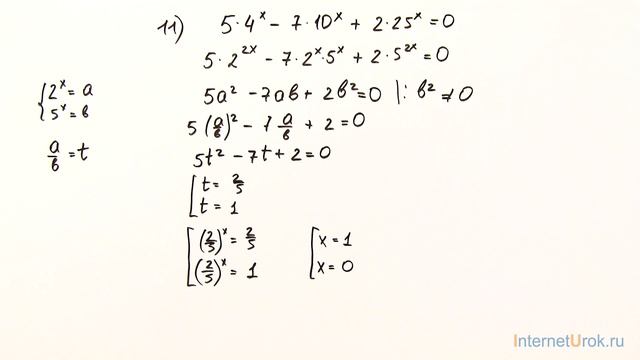 11) 5·4ˣ − 7·10ˣ + 2·25ˣ = 0
5·2²ˣ − 7·2ˣ·5ˣ + 2·5²ˣ = 0
{ 2ˣ = a
5ˣ = в
5a² − 7aв + 2в² = 0 |: в² ≠ 0
5 (a/в)² − 7 a/в + 2 = 0
a/в = t
5t² − 7t + 2 = 0
[ t = 2/5
t = 1
[ (2/5)ˣ = 2/5 [ x = 1
(2/5)ˣ = 1 x = 0
InternetUrok.ru